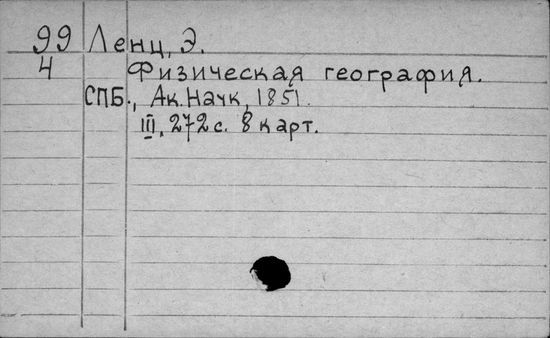 99 Ленц, Э.
4 Физическая география.
СПБ., Ак. Наук, 1851.
III, 272 с. 8 карт.